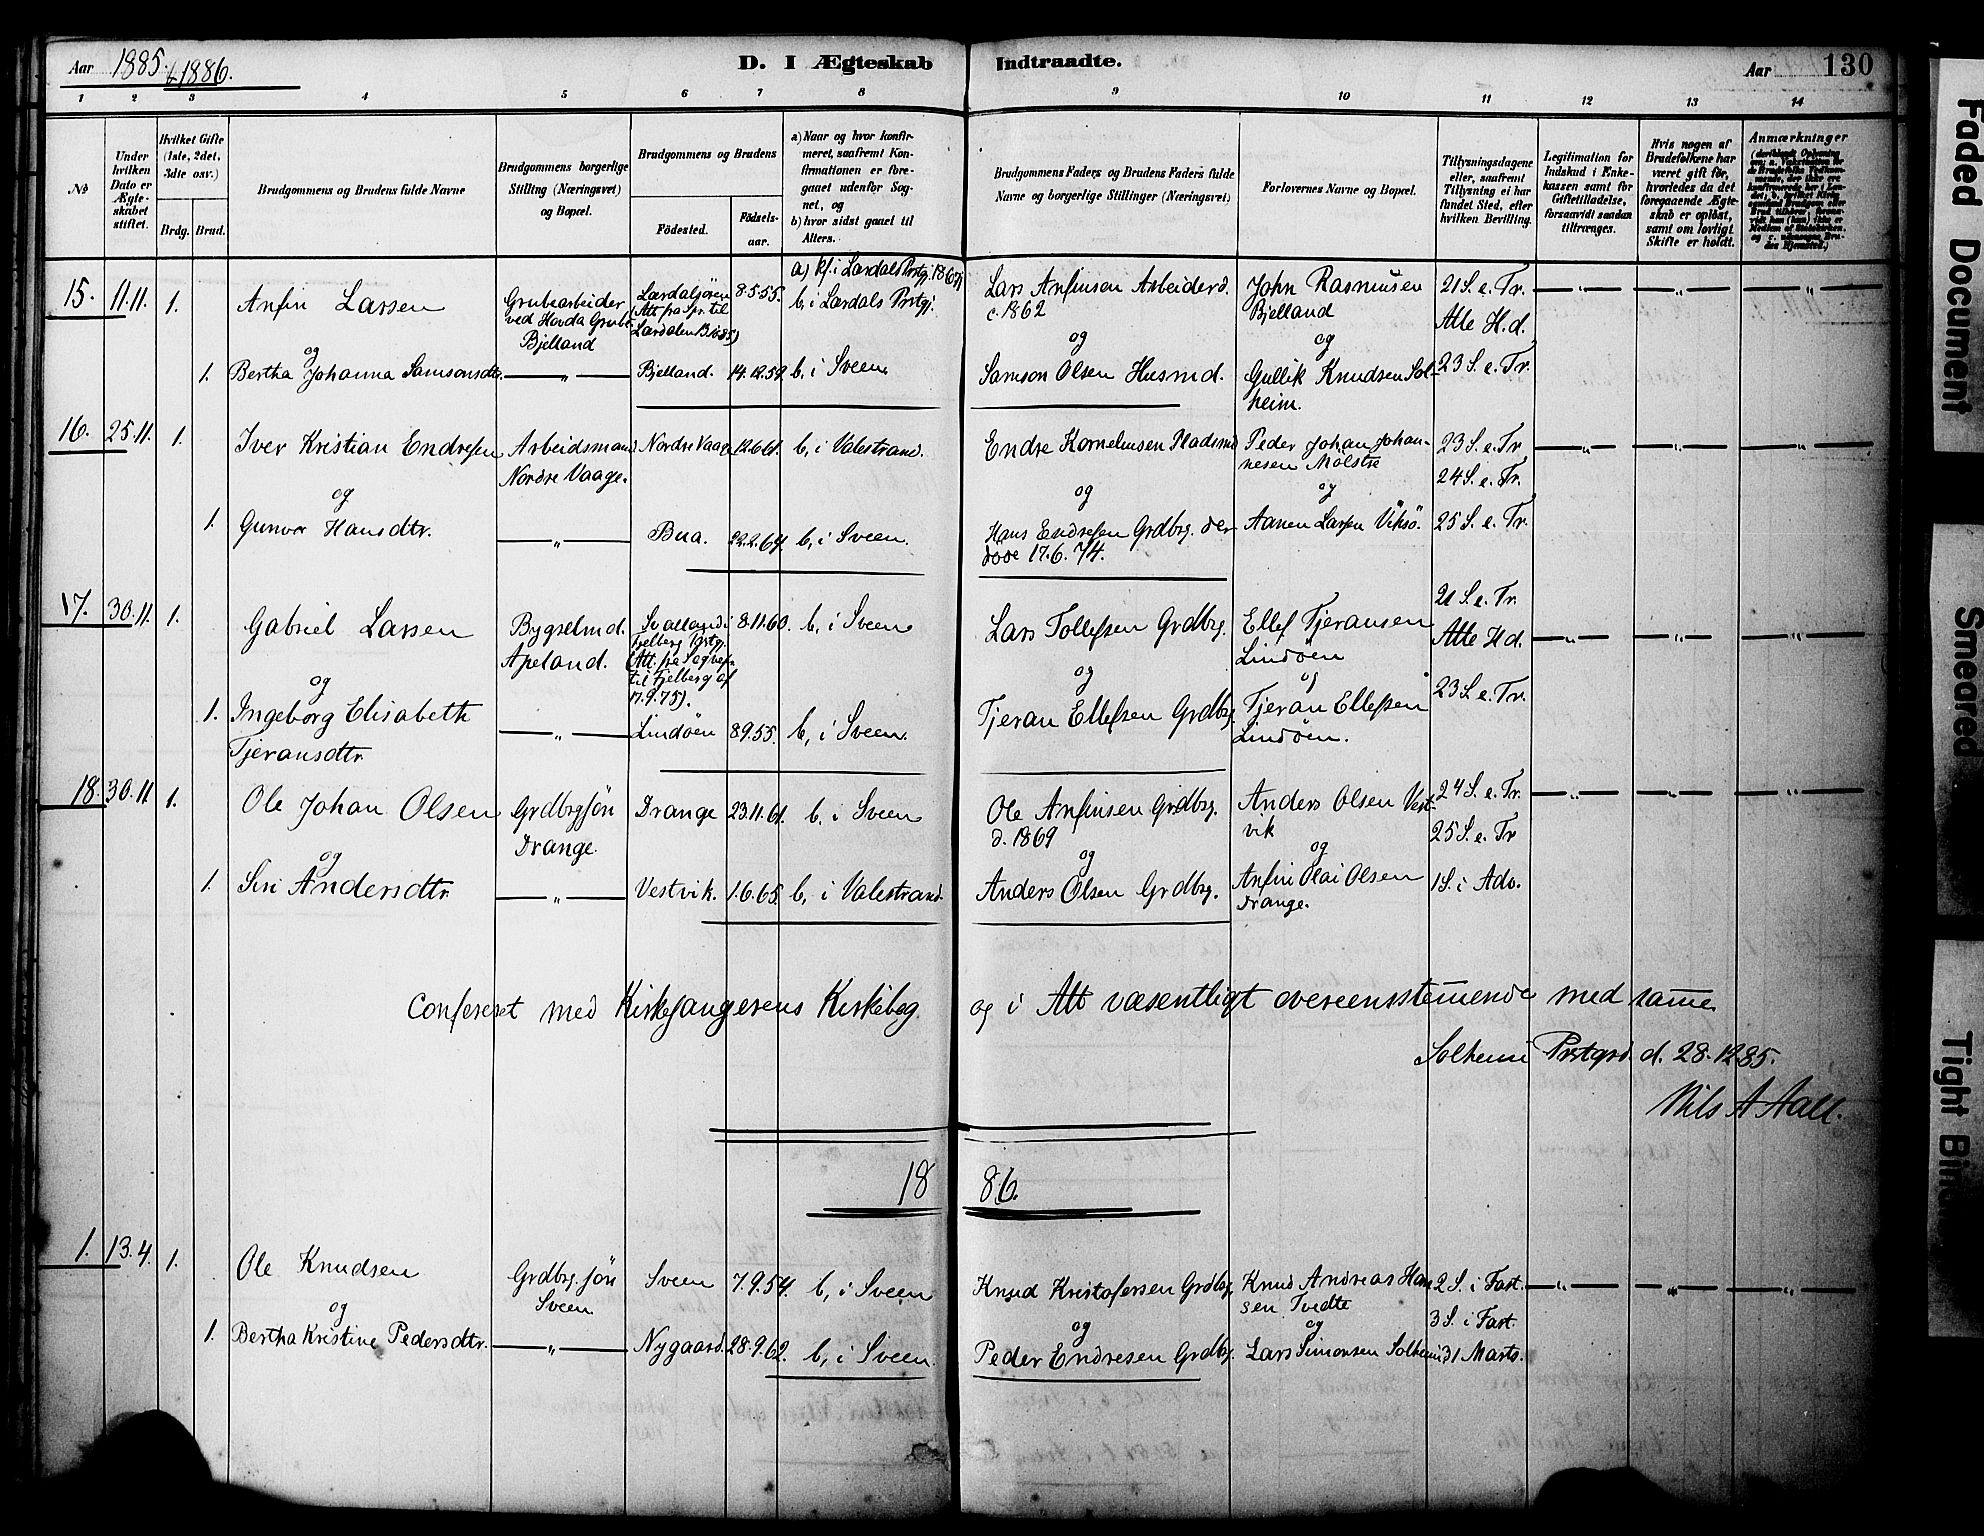 Aar 1885. & 1886.
D. I Ægteskab Indtraadte.
Aar 130
1 2 3 4 5 6 7 8 9 10 11 12 13 14
No
Under hvilken Dato er Ægteskabet stiftet.
Hvilket Gifte (1ste, 2det, 3die osv.)
Brdg. Brud.
Brudgommens og Brudens fulde Navne
Brudgommens borgerlige Stilling (Næringsvei) og Bopæl.
Brudgommens og Brudens
Fødested. Fødselsaar.
a) Naar og hvor konfirmeret, saafremt Konfirmationen er foregaaet udenfor Sognet, og
b) hvor sidst gaaet til Alters.
Brudgommens Faders og Brudens Faders fulde Navne og borgerlige Stillinger (Næringsvei)
Forlovernes Navne og Bopæl.
Tillysningsdagene eller, saafremt Tillysning ei har fundet Sted, efter hvilken Bevilling.
Legitimation for Indskud i Enkekassen samt for Giftetilladelse, forsaavidt saadan tiltrænges.
Hvis nogen af Brudefolkene har været gift før, hvorledes da det foregaaende Ægteskab er opløst, samt om lovligt Skifte er holdt.
Anmærkninger
15. 11.11. 1. Anfin Larsen
Grubearbeider ved Hovda Grube Bjelland
Lærdalsøren (Att. fra Spr. til Lærdalen B. 10.85)
8.5.55.
a) kf. i Lærdals Prstgj. 1869
b, i Lærdals Prstgj.
Lars Anfinsen Arbeider d. c. 1862
John Rasmusen Bjelland
21 S. e. Tr.
Alle H. d.
og
1. Bertha Johanna Samsonsdtr. — „ — Bjelland. 14.12.59. b, i Sveen.
og
Samson Olsen Husmd.
og
Gullik Knudsen Solheim.
23 S. e. Tr.
16. 25.11. 1. Iver Kristian Endresen
Arbeidsmand Nordre Vaage.
Nordre Vaage 12.6.61. b, i Valestrand.
Endre Korneliusen Pladsmd
Peder Johan Johannesen Mølstre
23 S. e. Tr
24 S. e. Tr.
og
1. Gunvor Hansdtr. — „ — Bua. 22.2.64. b, i Sveen.
og
Hans Endresen Grdbrg. der døde 17.6.74.
og
Aanen Larsen Viksø.
25 S. e. Tr.
17. 30.11. 1. Gabriel Larsen
Bygselmd. Apeland.
Svalland i Fjelberg Prstgj. (Att. fra Sogvepr. til Fjelberg af 17.9.75).
8.11.60. b, i Sveen
Lars Tollefsen Grdbrg.
Ellef Tjeransen Lindøen
21 S. e. Tr.
Alle H d.
og
1. Ingeborg Elisabeth Tjeransdtr. — „ — Lindøen 8.9.55. b, i Sveen.
og
Tjeran Ellefsen Grdbrg.
og
Tjeran Ellefsen Lindøen.
23 S. e. Tr.
18. 30.11 1. Ole Johan Olsen
Grdbrgsøn Drange.
Drange 23.11.61. b. i Sveen
Ole Anfinsen Grdbrg. d. 1869
Anders Olsen Vestvik
24 S. e. Tr.
25 S. e. Tr
og
1. Siri Andersdtr. — „ — Vestvik. 1.6.65. b, i Valestrand.
og
Anders Olsen Grdbrg.
og
Anfin Olai Olsen Drange.
1 S. i Adv.
Confereret med Kirkesangerens Kirkebog og i Alt væsentligt overeensstemmende med samme.
Solheim Prstgrd. d. 28.12.85.
Nils A Aall.
1886.
1. 13.4. 1. Ole Knudsen
Grdbrg. søn Sveen
Sveen 7.9.54. b, i Sveen
Knud Kristofersen Grdbrg.
Knud Andreas Hansen Tvedte
2 S. i Fast.
3 S. i Fast.
og
1. Bertha Kristine Pedersdtr. — „ — Nygaard. 28.9.62. b, i Sveen.
og
Peder Endresen Grdbg.
og
Lars Simonsen Solheim
31 Marts.
Faded Document
Smeared
Tight Bin